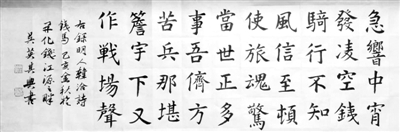 急響中宵
發凌空銕
騎行不知
風信至頓
使旅魂驚
當世正多
事吾儕方
苦兵那堪
簷宇下又
作戰場聲
右録明人韓洽詩
銕馬乙亥金秋於
錢江源之畔